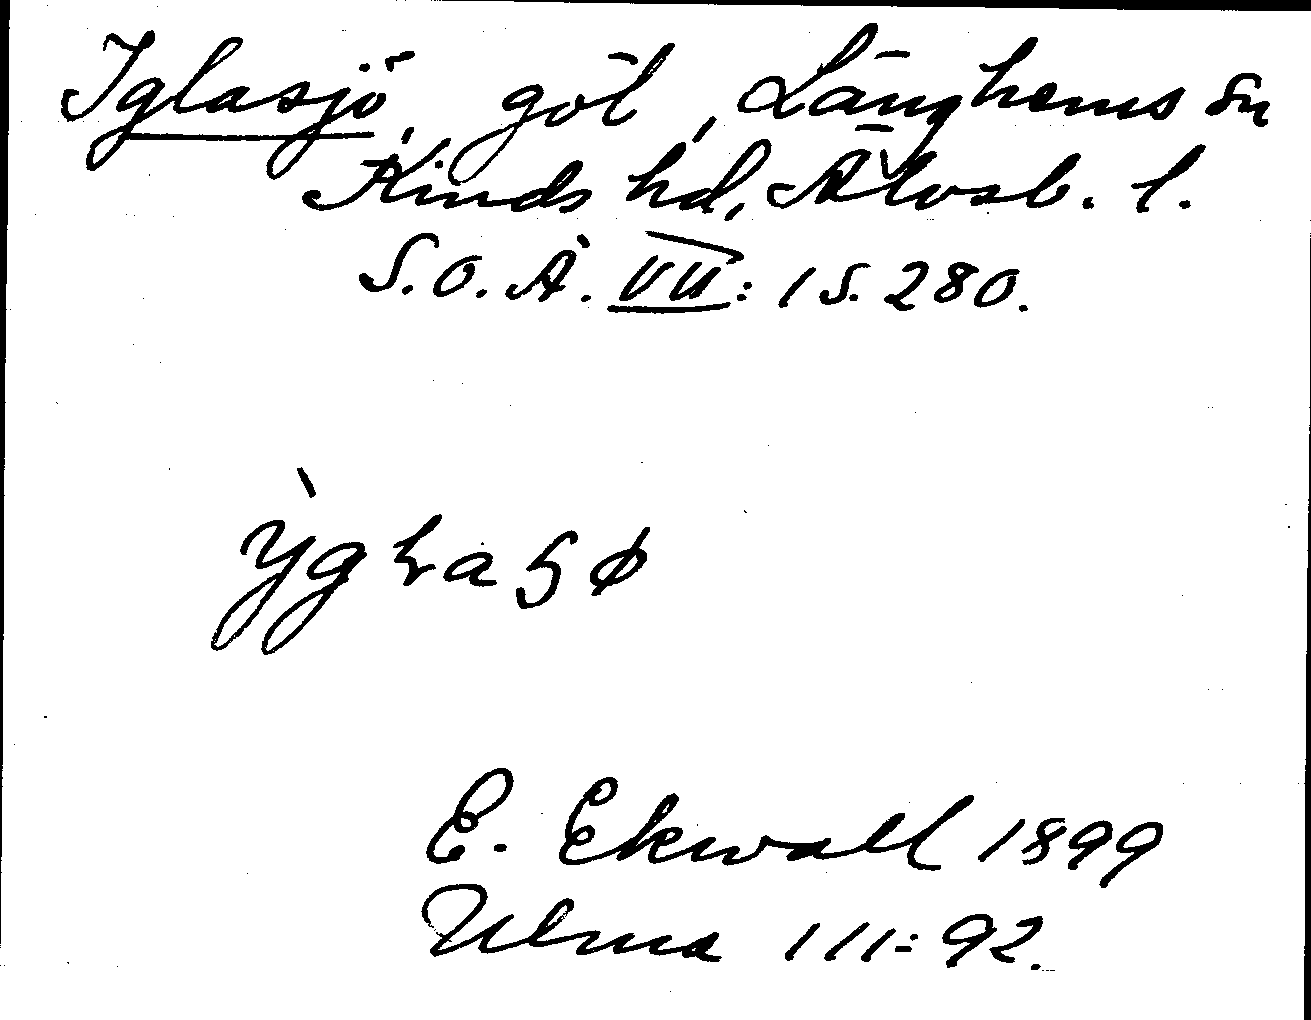 Iglasjö, göl, Länghems sn
Kinds hd, Älvsb. l.
S.O.Ä. VII: 1 S. 280.
E. Ekwall 1899
Ulma 111:92.